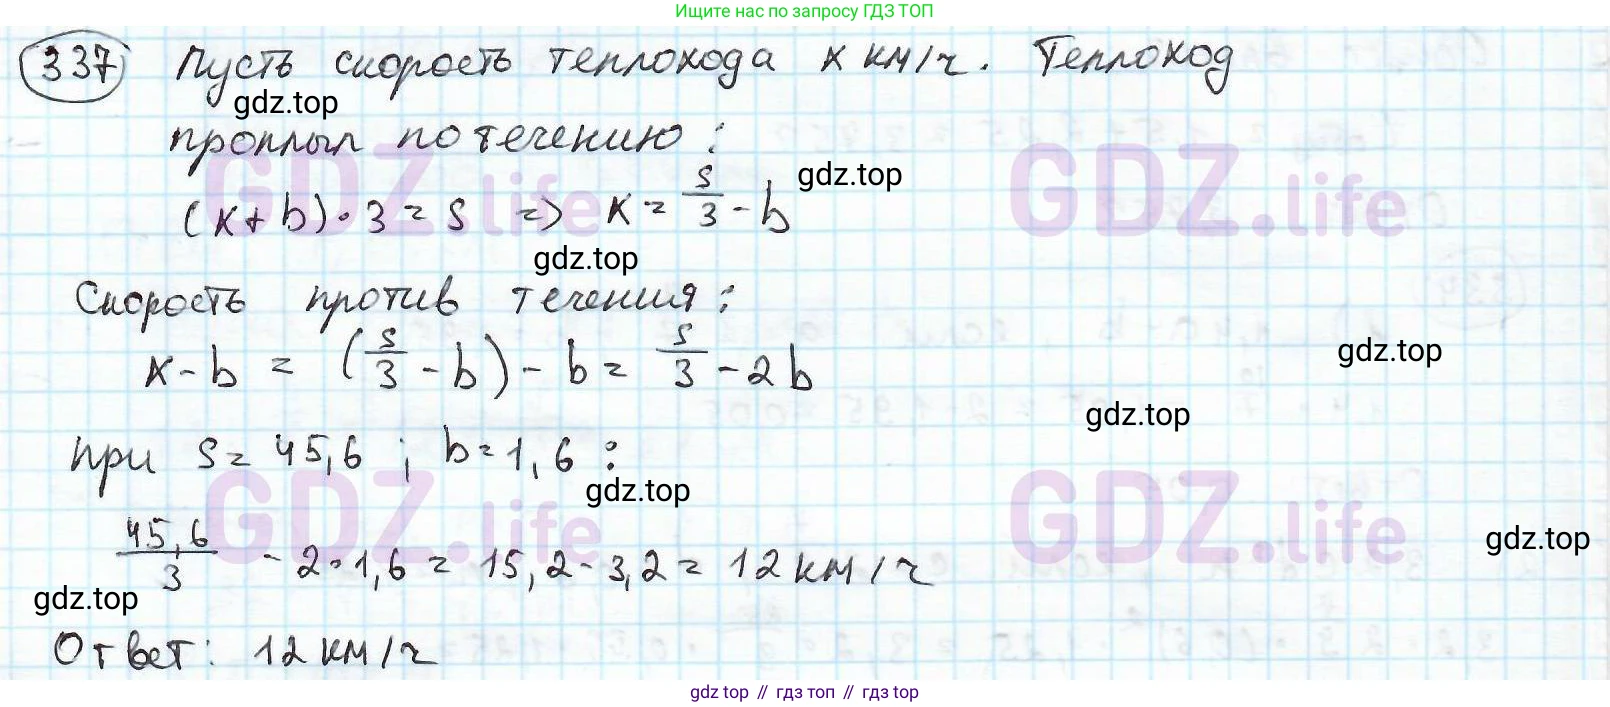 Ищите нас по запросу ГДЗ ТОП
337 Пусть скорость теплохода x км/ч. Теплоход
gdz.top
проплыл по течению:
gdz.top
(x+b)·3=s => x = s/3 - b
GDZ.life GDZ.life
gdz.top
Скорость против течения:
x-b = (s/3 - b) - b = s/3 - 2b
gdz.top
gdz.top
при s=45,6 ; b=1,6 :
gdz.top
GDZ.life GDZ.life
45,6/3 - 2·1,6 = 15,2-3,2 = 12 км/ч
gdz.top
gdz.top
Ответ: 12 км/ч
gdz top // гдз топ // gdz top